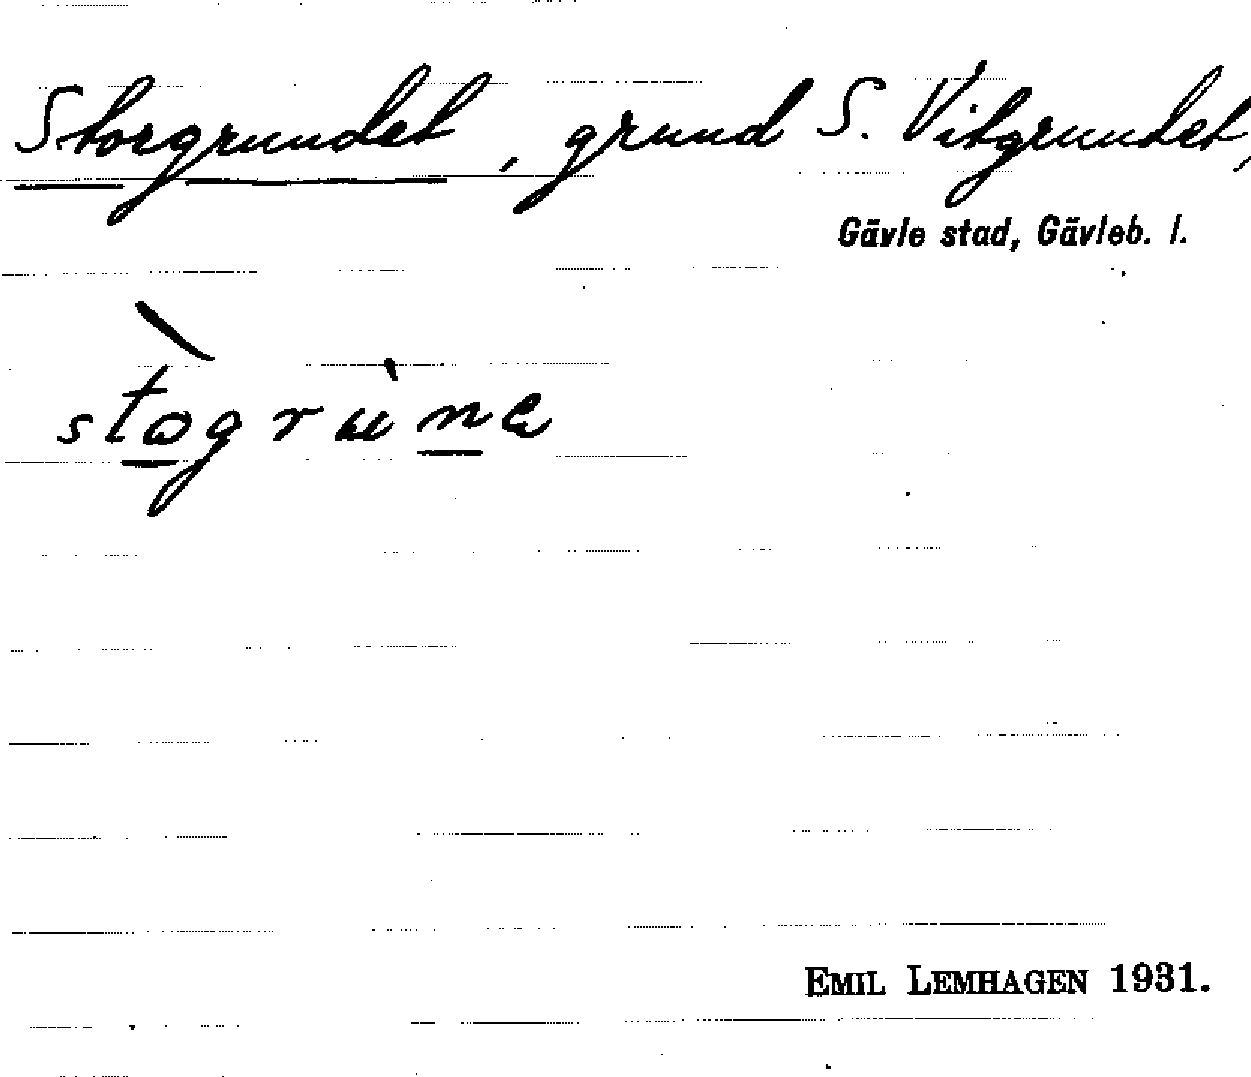 Storgrundet, grund S. Vitgrundet,
Gävle stad, Gävleb. l.
stogruna
EMIL LEMHAGEN 1931.